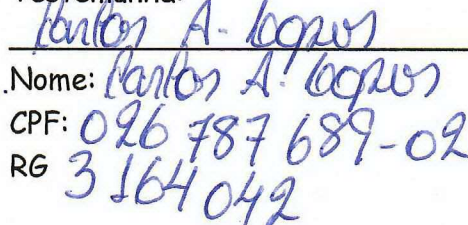 Carlos A. Lopes
Nome: Carlos A. Lopes
CPF: 026 787 689-02
RG 3164042